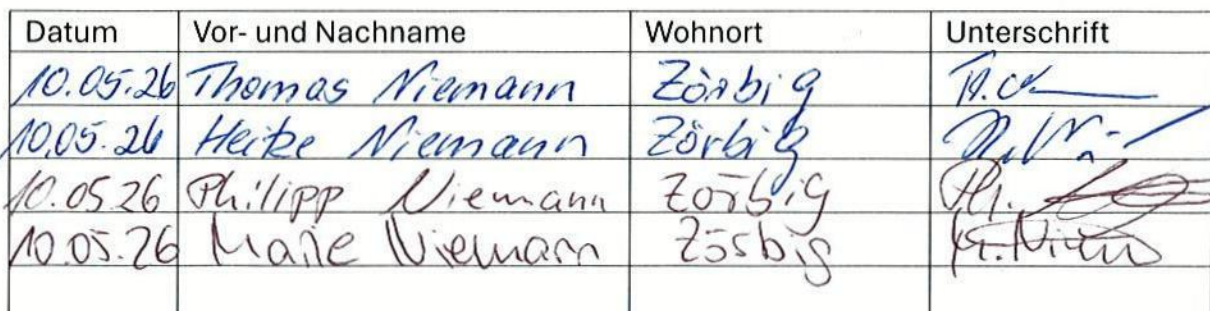 Datum Vor- und Nachname Wohnort Unterschrift
10.05.26 Thomas Niemann Zörbig
10.05.26 Heike Niemann Zörbig
10.05.26 Philipp Niemann Zörbig Ph.
10.05.26 Niemann Zörbig